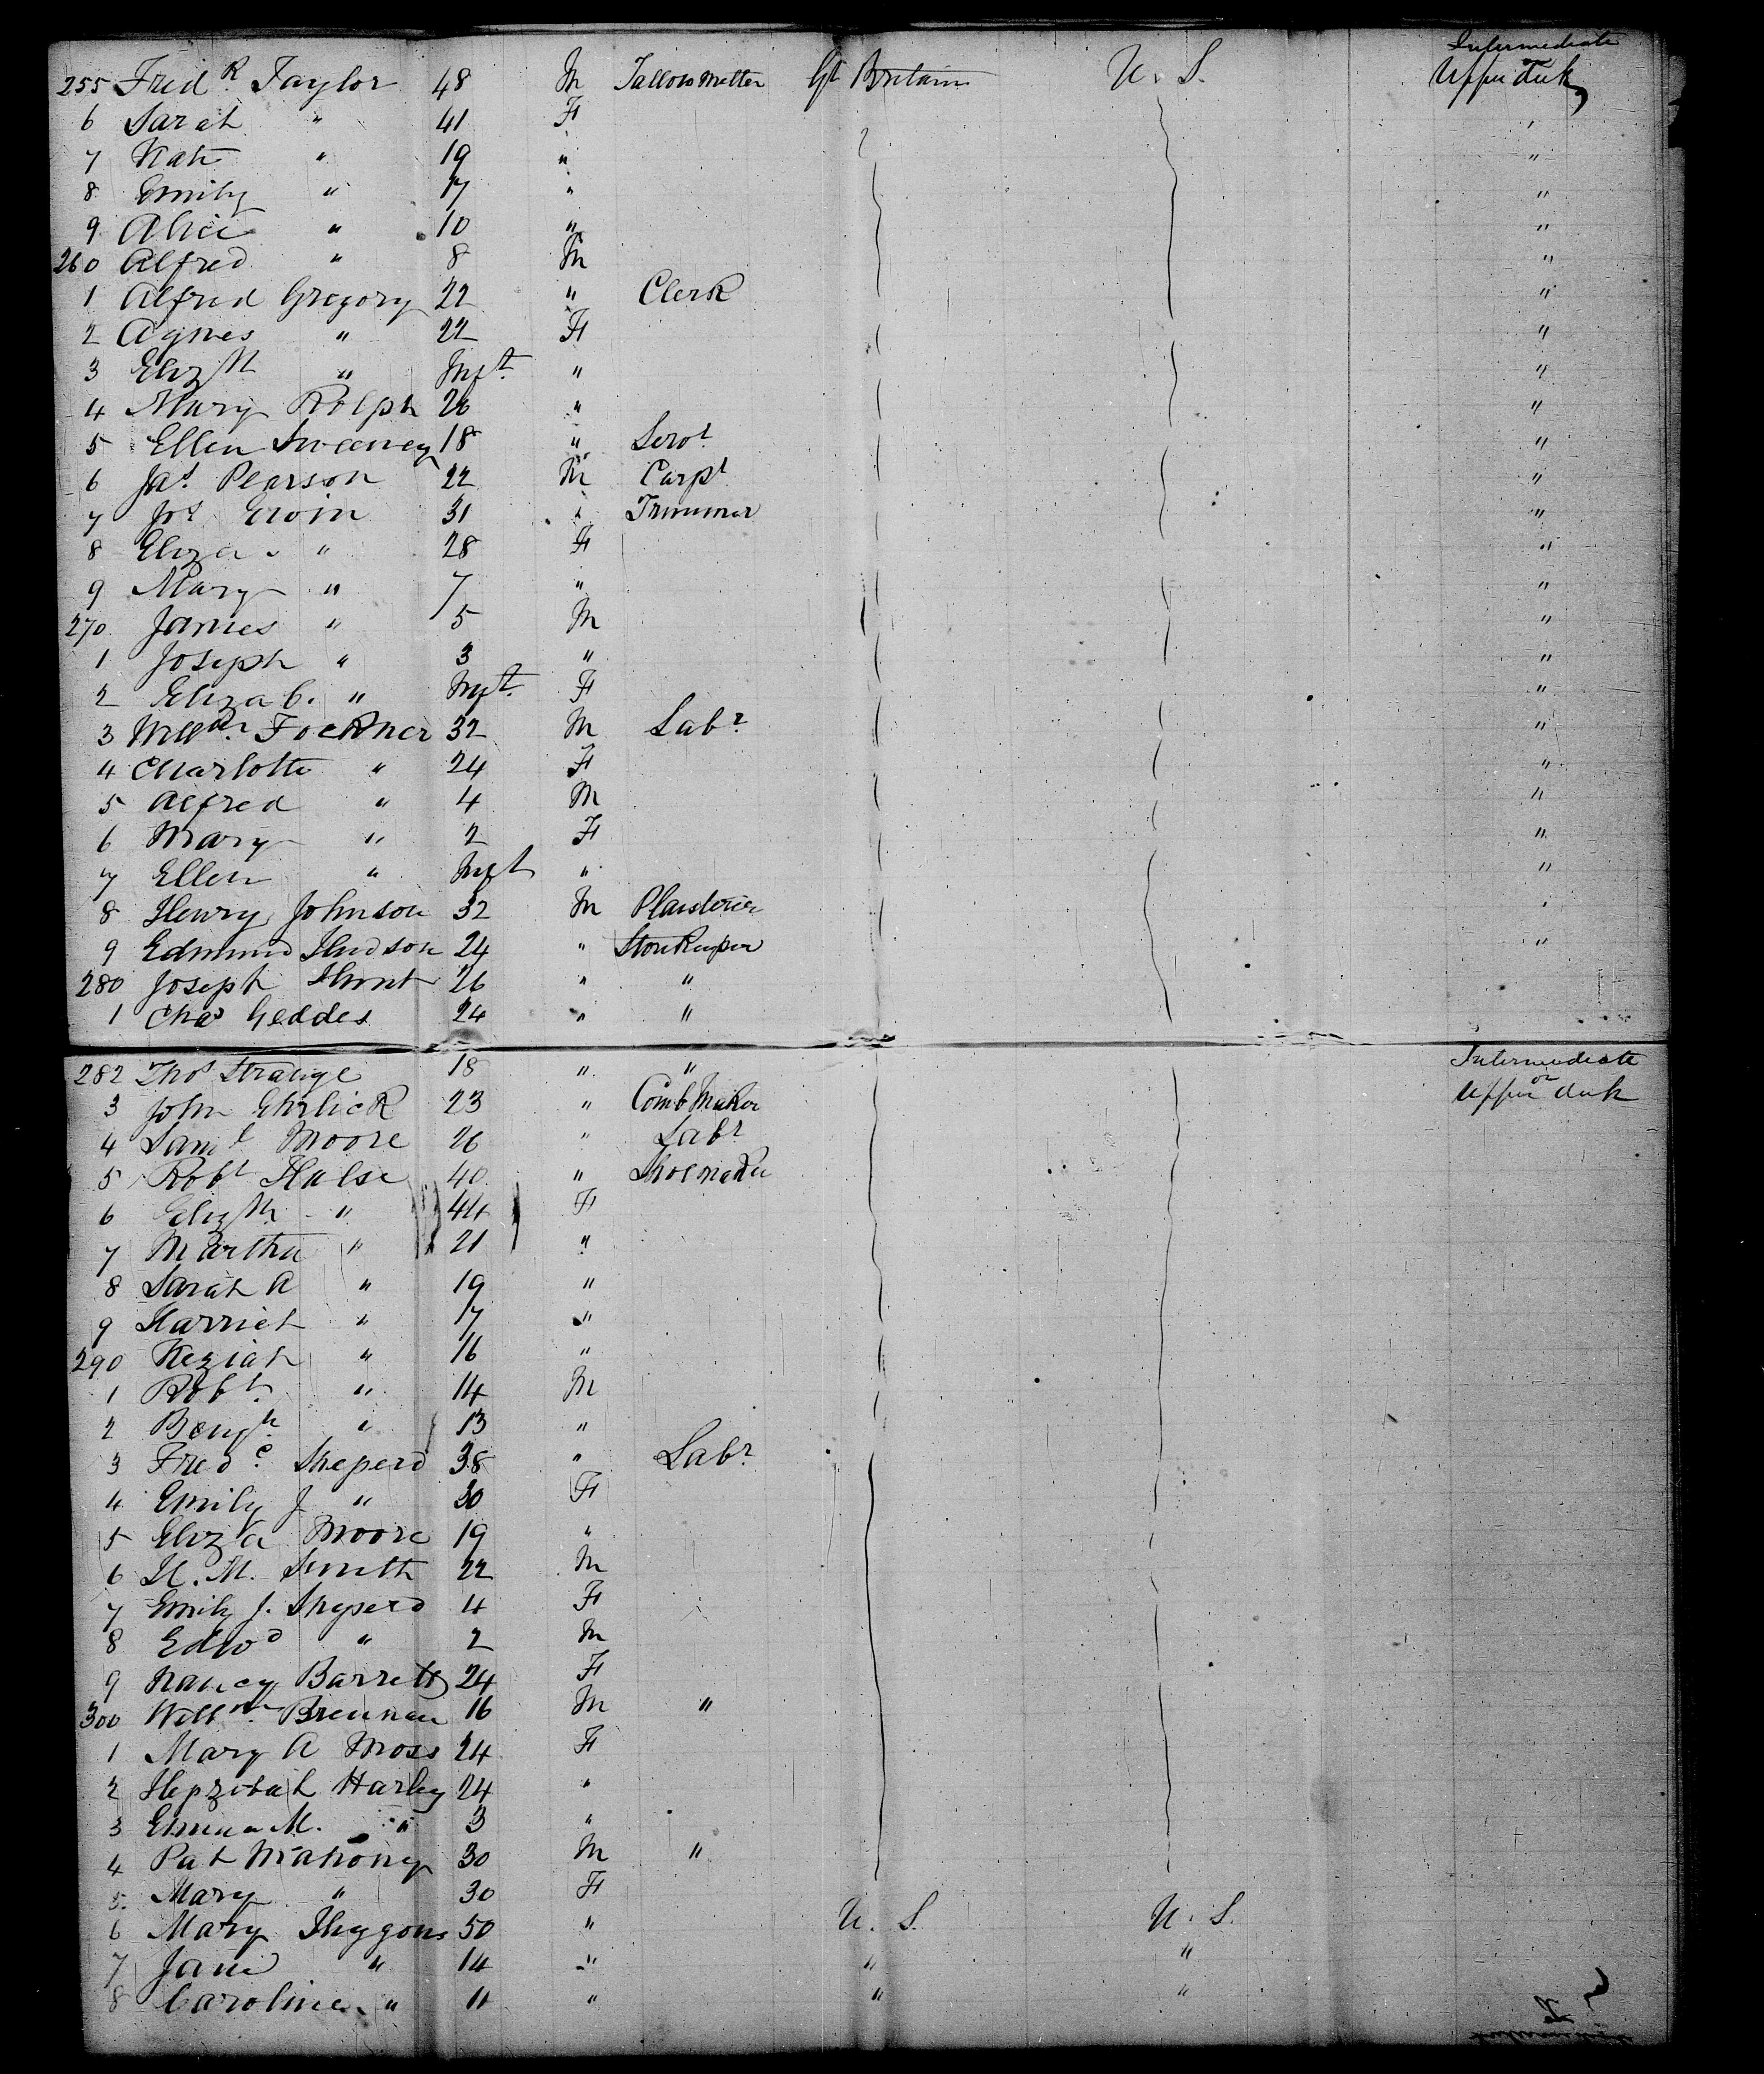 Intermediate
255 Fred R. Taylor 48 M Tallow Melter Gt Britain U. S. Upper Deck
6 Sarah " 41 F "
7 Kate " 19 " "
8 Emily " 17 " "
9 Alice " 10 " "
260 Alfred " 8 M "
1 Alfred Gregory 22 " Clerk "
2 Agnes " 22 F "
3 Elizth " Inft " "
4 Mary Rolph 26 " "
5 Ellen Sweeney 18 " Servt "
6 Jas Pearson 22 M Carpt "
7 Jos Ervin 31 " Trimmer "
8 Eliza " 28 F "
9 Mary " 7 " "
270 James " 5 M "
1 Joseph " 3 " "
2 Elizab. " Inft F "
3 Willm Fockner 32 M Labr "
4 Charlotte " 24 F "
5 Alfred " 4 M "
6 Mary " 2 F "
7 Ellen " Inft " "
8 Henry Johnson 32 M Plaisterer "
9 Edmund Hudson 24 " StoreKeeper "
280 Joseph Hunt 26 " "
1 Chas Geddes 24 " "
282 Thos Strange 18 " " Intermediate
3 John Ehrlick 23 " Comb Maker or Upper deck
4 Saml Moore 26 " Labr
5 Robt Hulse 40 " Shoemaker
6 Elizth " 44 F
7 Martha " 21 "
8 Sarah A " 19 "
9 Harriet " 17 "
290 Keziah " 16 "
1 Robt " 14 M
2 Benjn " 13 "
3 Fredc Sheperd 38 " Labr
4 Emily J " 30 F
5 Eliza Moore 19 "
6 H. M. Smith 22 M
7 Emily J. Sheperd 4 F
8 Edwd " 2 M
9 Nancy Barrett 24 F
300 Willm Brennan 16 M "
1 Mary A Moss 24 F
2 Hepzibah Harley 24 "
3 Emma M. " 3 "
4 Pat Mahony 30 M "
5 Mary " 30 F
6 Mary Higgons 50 " U. S. U. S.
7 Jane " 14 " " "
8 Caroline " 11 " " "